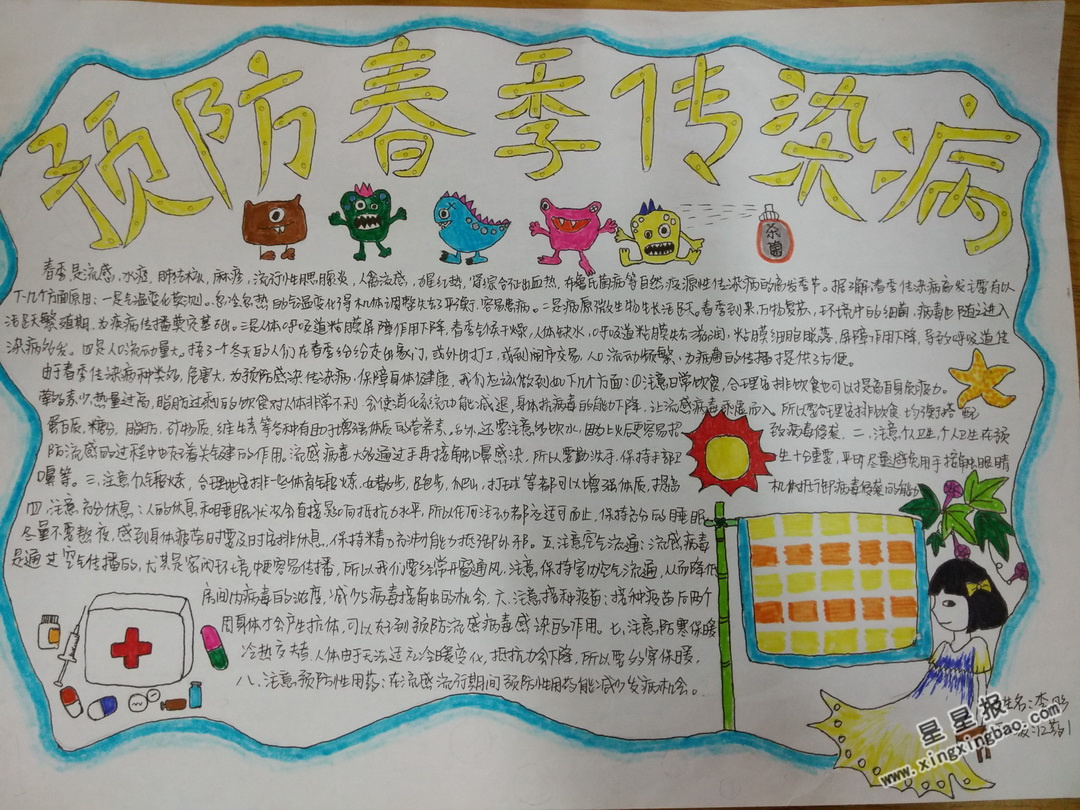 预防春季传染病
杀菌
春季是流感,水痘,肺结核,麻疹,流行性腮腺炎,人禽流感,猩红热,肾综合征出血热,布鲁氏菌病等自然疫源性传染病的高发季节。据了解春季传染病高发主要有以
下几个方面原因:一是气温变化莫测。忽冷忽热的气温变化得机体调整失去了平衡,容易患病。二是病原微生物生长活跃。春季到来,万物复苏,环境中的细菌,病毒也随之进入
活跃繁殖期,为疾病传播奠定基础。三是人体呼吸道粘膜屏障作用下降,春季气候干燥,人体缺水,呼吸道粘膜失去滋润,粘膜细胞脱落,屏障作用下降,导致呼吸道传
染病多发。四是人口流动量大。捂了一个冬天的人们在春季纷纷走出家门,或外出打工,或到闹市交易,人口流动频繁,为病菌的传播提供了方便。
由于春季传染病种类多,危害大,为预防感染传染病,保障身体健康,我们应该做到如下几个方面:①注意日常饮食,合理安排饮食也可以提高自身免疫力。
营养素少,热量过高,脂肪过剩的饮食对人体非常不利,会使消化系统功能减退,身体抗病毒的能力下降,让流感病毒乘虚而入。所以要合理安排饮食,均衡搭配
蛋白质,糖份,脂肪,矿物质,维生素等各种有助于增强体质的营养素。另外,还要注意多饮水,因为上火后更容易招 致病毒侵袭。二、注意个人卫生,个人卫生在预
防流感的过程中也起着关键的作用。流感病毒大多通过手再接触口鼻感染,所以要勤洗手,保持手部卫 生十分重要,平时尽量避免用手接触眼睛
口鼻等。三、注意体育锻炼,合理地安排一些体育锻炼,如散步,跑步,爬山,打球等都可以增强体质,提高 机体抵御病毒侵袭的能力
四、注意充分休息:人的休息和睡眠状况会直接影响抵抗力水平,所以任何活动都应适可而止,保持充分的睡眠
尽量不要熬夜,感到身体疲劳时要及时安排休息,保持精力充沛才能抵御外邪。五、注意空气流通:流感病毒
是通过空气传播的,尤其是室内环境中更容易传播,所以我们要经常开窗通风,注意保持室内空气流通,从而降低
房间内病毒的浓度,减少与病毒接触的机会。六、注意接种疫苗:接种疫苗后两个
周身体才会产生抗体,可以起到预防流感病毒感染的作用。七、注意防寒保暖
冷热交替,人体由于无法适应冷暖变化,抵抗力会下降,所以要多穿保暖,
八、注意预防性用药:在流感流行期间预防性用药能减少发病机会。
生名:李
药1
星星报
www.xingxingbao.com